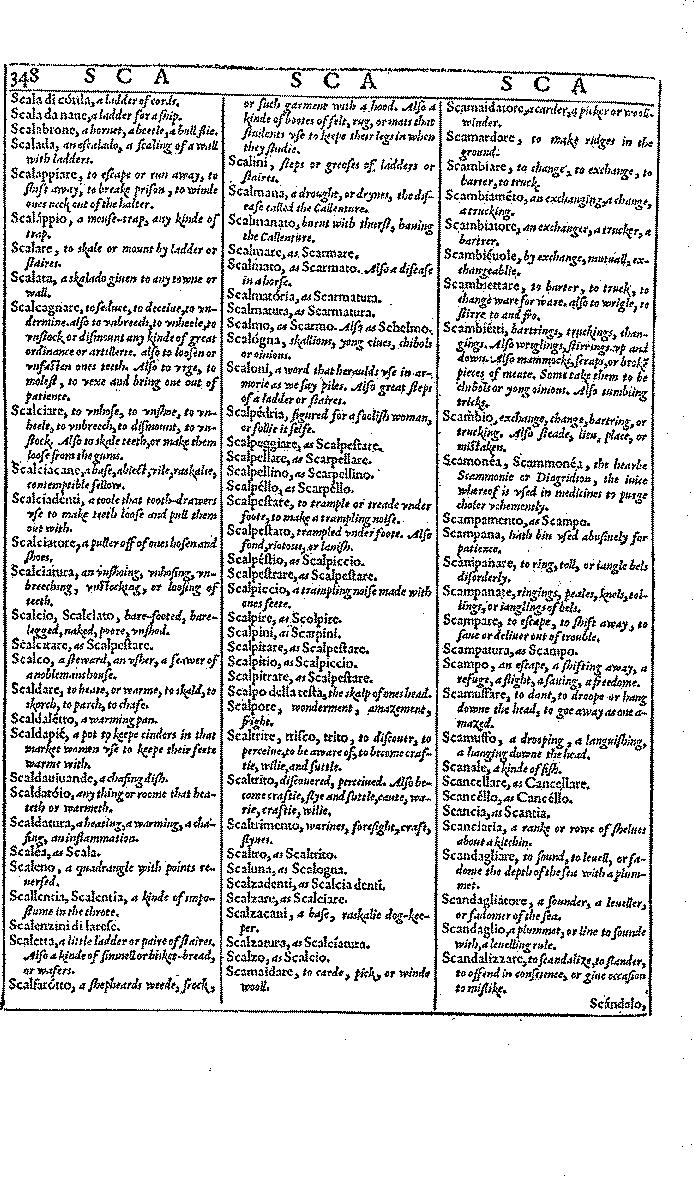 348 S C A S C A S C A
Scala di córda, a ladder of cords.
Scala da naue, a ladder for a ship.
Scalabrone, a hornet, a beetle, a bull flie.
Scalada, an escalado, a scaling of a wall
with ladders.
Scalappiare, to escape or run away, to
shift away, to breake prison, to winde
ones neck out of the halter.
Scaláppio, a mouse-trap, any kinde of
trap.
Scalare, to skale or mount by ladder or
staires.
Scalata, a skalado giuen to any towne or
wall.
Scalcagnare, to seduce, to deceiue, to vn-
dermine. Also to vnbreech, to vnheele, to
vnstock or dismount any kinde of great
ordinance or artillerie. also to loosen or
vnfasten ones teeth. Also to vrge, to
molest, to vexe and bring one out of
patience.
Scalciare, to vnhose, to vnshoe, to vn-
heele, to vnbreech, to dismount, to vn-
stock. Also to skale teeth, or make them
loose from the gums.
Scalciacane, a base, abiect, vile, raskalie,
contemptible fellow.
Scalciadenti, a toole that tooth-drawers
vse to make teeth loose and pull them
out with.
Scalciatore, a puller off of ones hosen and
shoes.
Scalciatura, an vnshoing, vnhosing, vn-
breeching, vnstocking, or loosing of
teeth.
Scalcio, Scalciato, bare-footed, bare-
legged, naked, poore, vnshod.
Scalcizare, as Scalpestare.
Scalco, a steward, an vsher, a sewer of
a noblemans house.
Scaldare, to heate, or warme, to skald, to
skorch, to parch, to chafe.
Scaldalétto, a warming pan.
Scaldapié, a pot to keepe cinders in that
market women vse to keepe their feete
warme with.
Scaldauiuande, a chafing dish.
Scaldatóio, any thing or roome that hea-
teth or warmeth.
Scaldatura, a heating, a warming, a cha-
fing, an inflammation.
Scaléa, as Scala.
Scaleno, a quadrangle with points re-
uersed.
Scallentia, Scalentia, a kinde of impo-
stume in the throte.
Scalenzini di
Scaletta, a little ladder or paire of staires.
Also a kinde of simnell or bisket-bread,
or wafers.
Scalfarótto, a shepheards weede, frock,
or such garment with a hood. Also a
kinde of bootes of felt, rug, or mats that
students vse to keepe their legs in when
they studie.
Scalini, steps or greeses of ladders or
staires.
Scalmana, a drought, or drynes, the dis-
ease called the Callenture.
Scalmanato, burnt with thurst, hauing
the Callenture.
Scalmare, as Scarmare.
Scalmato, as Scarmato. Also a disease
in a horse.
Scalmatória, as Scarmatura.
Scalmatura, as Scarmatura.
Scalmo, as Scarmo. Also as Schelmo.
Scalógna, skallions, yong ciues, chibols
or oinions.
Scaloni, a word that heraulds vse in ar-
morie as we say piles. Also great steps
of a ladder or staires.
Scalpédria, figured for a foolish woman,
or follie it selfe.
Scalpeggiare, as Scalpestare.
Scalpellare, as Scarpellare.
Scalpellino, as Scarpellino.
Scalpéllo, as Scarpéllo.
Scalpestare, to trample or treade vnder
foote, to make a trampling noise.
Scalpestato, trampled vnder foote. Also
fond, riotous, or lauish.
Scalpéstio, as Scalpiccio.
Scalpestrare, as Scalpestare.
Scalpiccio, a trampling noise made with
ones feete.
Scalpire, as Scolpire.
Scalpini, as Scarpini.
Scalpitare, as Scalpestare.
Scalpitio, as Scalpiccio.
Scalpitrare, as Scalpestare.
Scalpo della testa, the skalp of ones head.
Scalpore, wonderment, amazement,
fright.
Scaltrire, trisco, trito, to discouer, to
perceiue, to be aware of, to become craf-
tie, wilie, and suttle.
Scaltrito, discouered, perceiued. Also be-
come craftie, slye and suttle, caute, wa-
rie, craftie, wilie.
Scaltrimento, warines, foresight, craft,
slynes.
Scaltro, as Scaltrito.
Scaluna, as Scalogna.
Scalzadenti, as Scalcia denti.
Scalzare, as Scalciare.
Scalzacani, a base, raskalie dog-kee-
per.
Scalzatura, as Scalciatura.
Scalzo, as Scalcio.
Scamaidare, to carde, pick, or winde
wooll.
Scamaidatore, a carder, a picker or wooll-
winder.
Scamardare, to make ridges in the
ground.
Scambiare, to change, to exchange, to
barter, to truck.
Scambiaméto, an exchanging, a change,
a trucking.
Scambiatore, an exchanger, a trucker, a
bartrer.
Scambiéuole, by exchange, mutuall, ex-
changeablie.
Scambiettare, to barter, to truck, to
change ware for ware. also to wrigle, to
stirre to and fro.
Scambiétti, bartrings, truckings, chan-
gings. Also wriglings, stirrings vp and
downe. Also mammocks, scraps, or brokē
pieces of meate. Some take them to be
chibols or yong oinions. Also tumbling
tricks.
Scambio, exchange, change, bartring, or
trucking. Also steade, lieu, place, or
mistaken.
Scamonéa, Scammonéa, the hearbe
Scammonie or Diagridion, the iuice
whereof is vsed in medicines to purge
choler vehemently.
Scampamento, as Scampo.
Scampana, hath bin vsed abusiuely for
patience.
Scampanare, to ring, toll, or iangle bels
disorderly.
Scampanate, ringings, peales, knels, tol-
lings, or ianglings of bels.
Scampare, to escape, to shift away, to
saue or deliuer out of trouble.
Scampatura, as Scampo.
Scampo, an escape, a shifting away, a
refuge, a flight, a sauing, a freedome.
Scamuffare, to dant, to droope or hang
downe the head, to goe away as one a-
mazed.
Scamuffo, a drooping, a languishing,
a hanging downe the head.
Scanale, a kinde of fish.
Scancellare, as Cancellare.
Scancéllo, as Cancéllo.
Scancia, as Scantia.
Scanciaria, a ranke or rowe of shelues
about a kitchin.
Scandagliare, to sound, to leuell, or fa-
dome the depth of the sea with a plum-
met.
Scandagliatore, a sounder, a leueller,
or fadomer of the sea.
Scandaglio, a plummet, or line to sounde
with, a leuelling rule.
Scandalizzare, to scandalize, to slander,
to offend in conscience, or giue occasion
to mislike.
Scándalo,